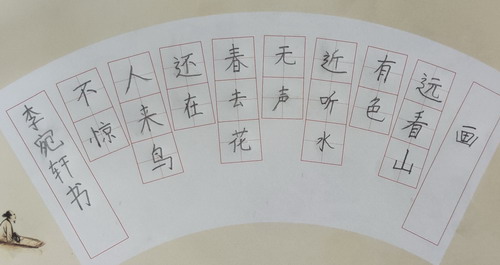 画
远看山
有色
近听水
无声
春去花
还在
人来鸟
不惊
李宛轩书